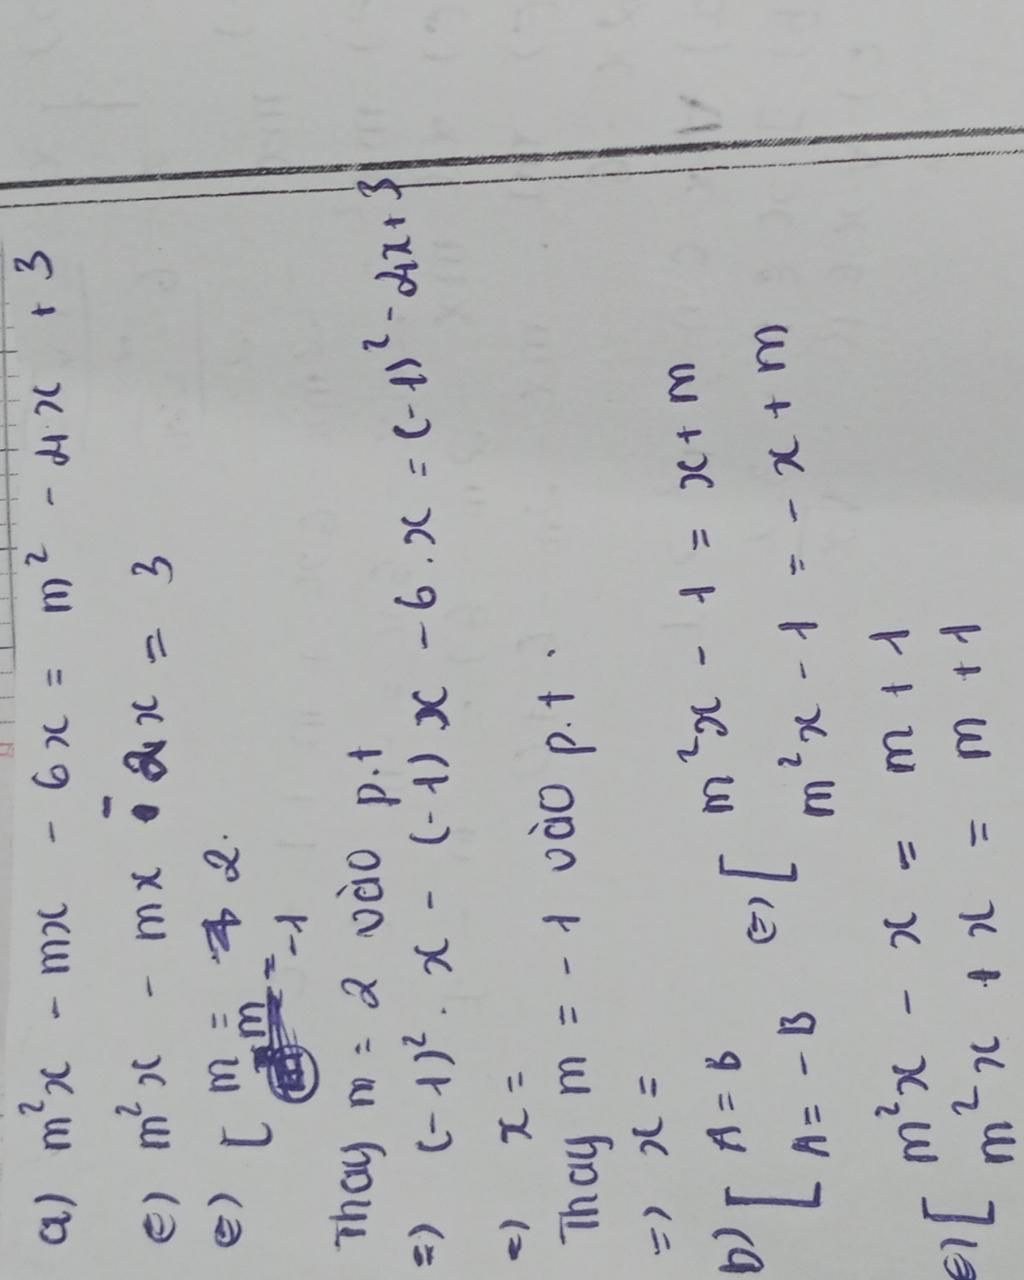 a) m²x - mx - 6x = m² - 4x + 3
⇔) m²x - mx - 2x = 3
⇔) [ m = 2.
m = -1
Thay m = 2 vào p.t
=) (-1)². x - (-1) x - 6. x = (-1)² - 4x + 3
=) x =
Thay m = -1 vào p.t.
=) x =
b) [ A = B ⇔) [ m²x - 1 = x + m
A = - B m²x - 1 = - x + m
⇔) [ m²x - x = m + 1
m²x + x = m + 1